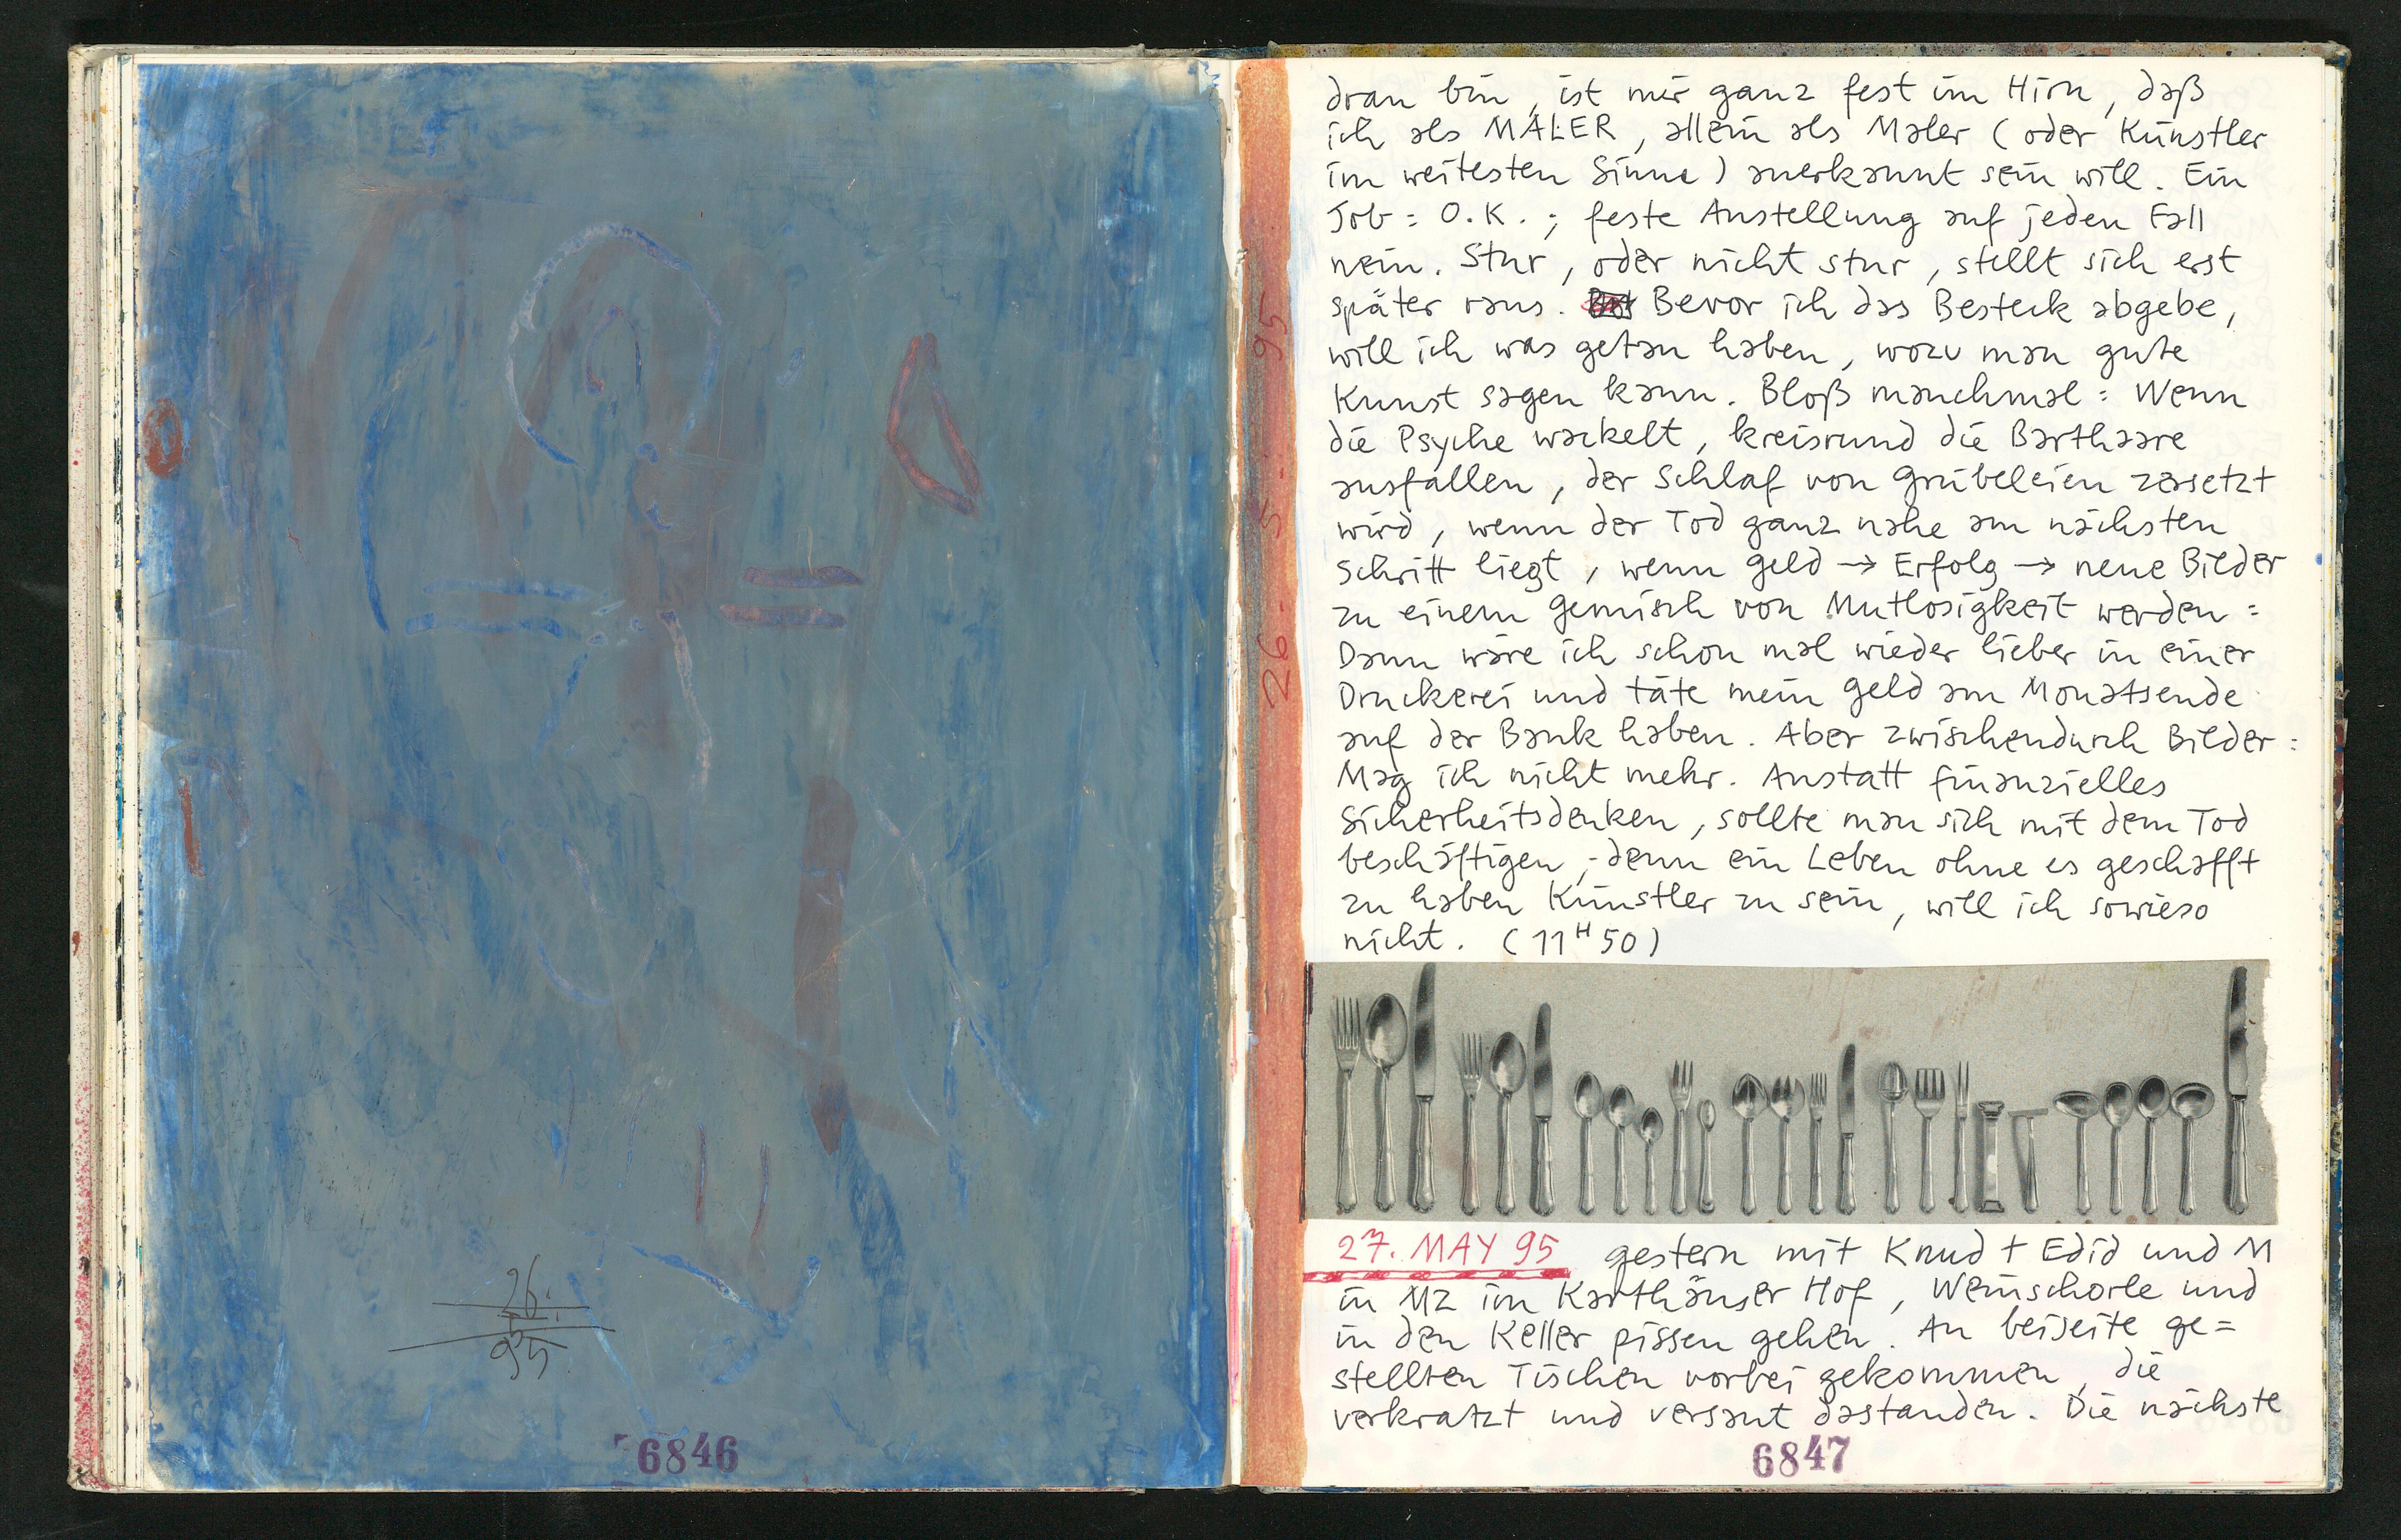 26.
5.
95.
6846
26. 5. 95
dran bin, ist mir ganz fest im Hirn, daß
ich als MALER, allein als Maler (oder Künstler
im weitesten Sinne) anerkannt sein will. Ein
Job = O.K.; feste Anstellung auf jeden Fall
nein. Stur, oder nicht stur, stellt sich erst
später raus. Bevor ich das Besteck abgebe,
will ich was getan haben, wozu man gute
Kunst sagen kann. Bloß manchmal: Wenn
die Psyche wackelt, kreisrund die Barthaare
ausfallen, der Schlaf von Grübeleien zersetzt
wird, wenn der Tod ganz nahe am nächsten
Schritt liegt, wenn Geld → Erfolg → neue Bilder
zu einem Gemisch von Mutlosigkeit werden:
Dann wäre ich schon mal wieder lieber in einer
Druckerei und täte mein Geld am Monatsende
auf der Bank haben. Aber zwischendurch Bilder:
Mag ich nicht mehr. Anstatt finanzielles
Sicherheitsdenken, sollte man sich mit dem Tod
beschäftigen, denn ein Leben ohne es geschafft
zu haben Künstler zu sein, will ich sowieso
nicht. (11H50)
27. MAY 95 gestern mit Knud + Edid und M
in MZ im Karthäuser Hof, Weinschorle und
in den Keller pissen gehen. An beiseite ge=
stellten Tischen vorbei gekommen, die
verkratzt und versaut dastanden. Die nächste
6847